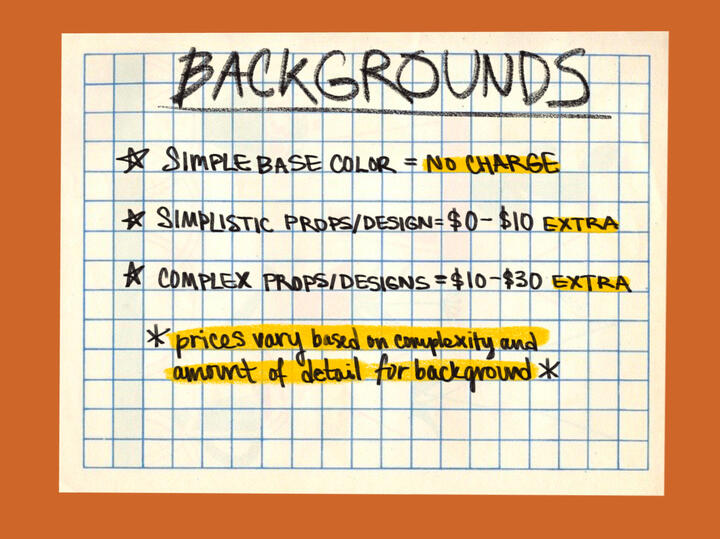 BACKGROUNDS
☆ SIMPLE BASE COLOR = NO CHARGE
☆ SIMPLISTIC PROPS/DESIGN = $0 - $10 EXTRA
☆ COMPLEX PROPS/DESIGNS = $10 - $30 EXTRA
* prices vary based on complexity and
amount of detail for background *